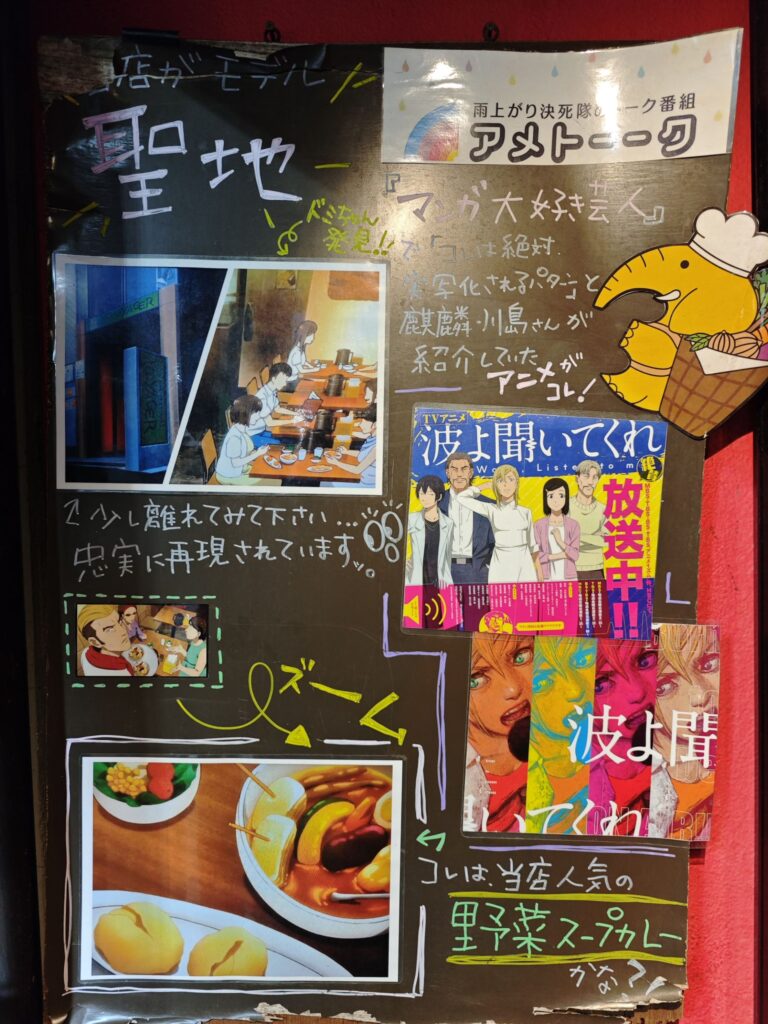 店がモデル
聖地
ドミちゃん
発見!!
雨上がり決死隊のトーク番組
アメトーーク
『マンガ大好き芸人』
で「コレは絶対
実写化されるパターン」と
麒麟・川島さんが
紹介していた
アニメが
コレ!
TVアニメ
波よ聞いてくれ
Listen to m
放送中!!
↑少し離れてみて下さい...
忠実に再現されていますッ。
ズーム
波よ聞
いてくれ
コレは、当店人気の
野菜スープカレー
かな?!